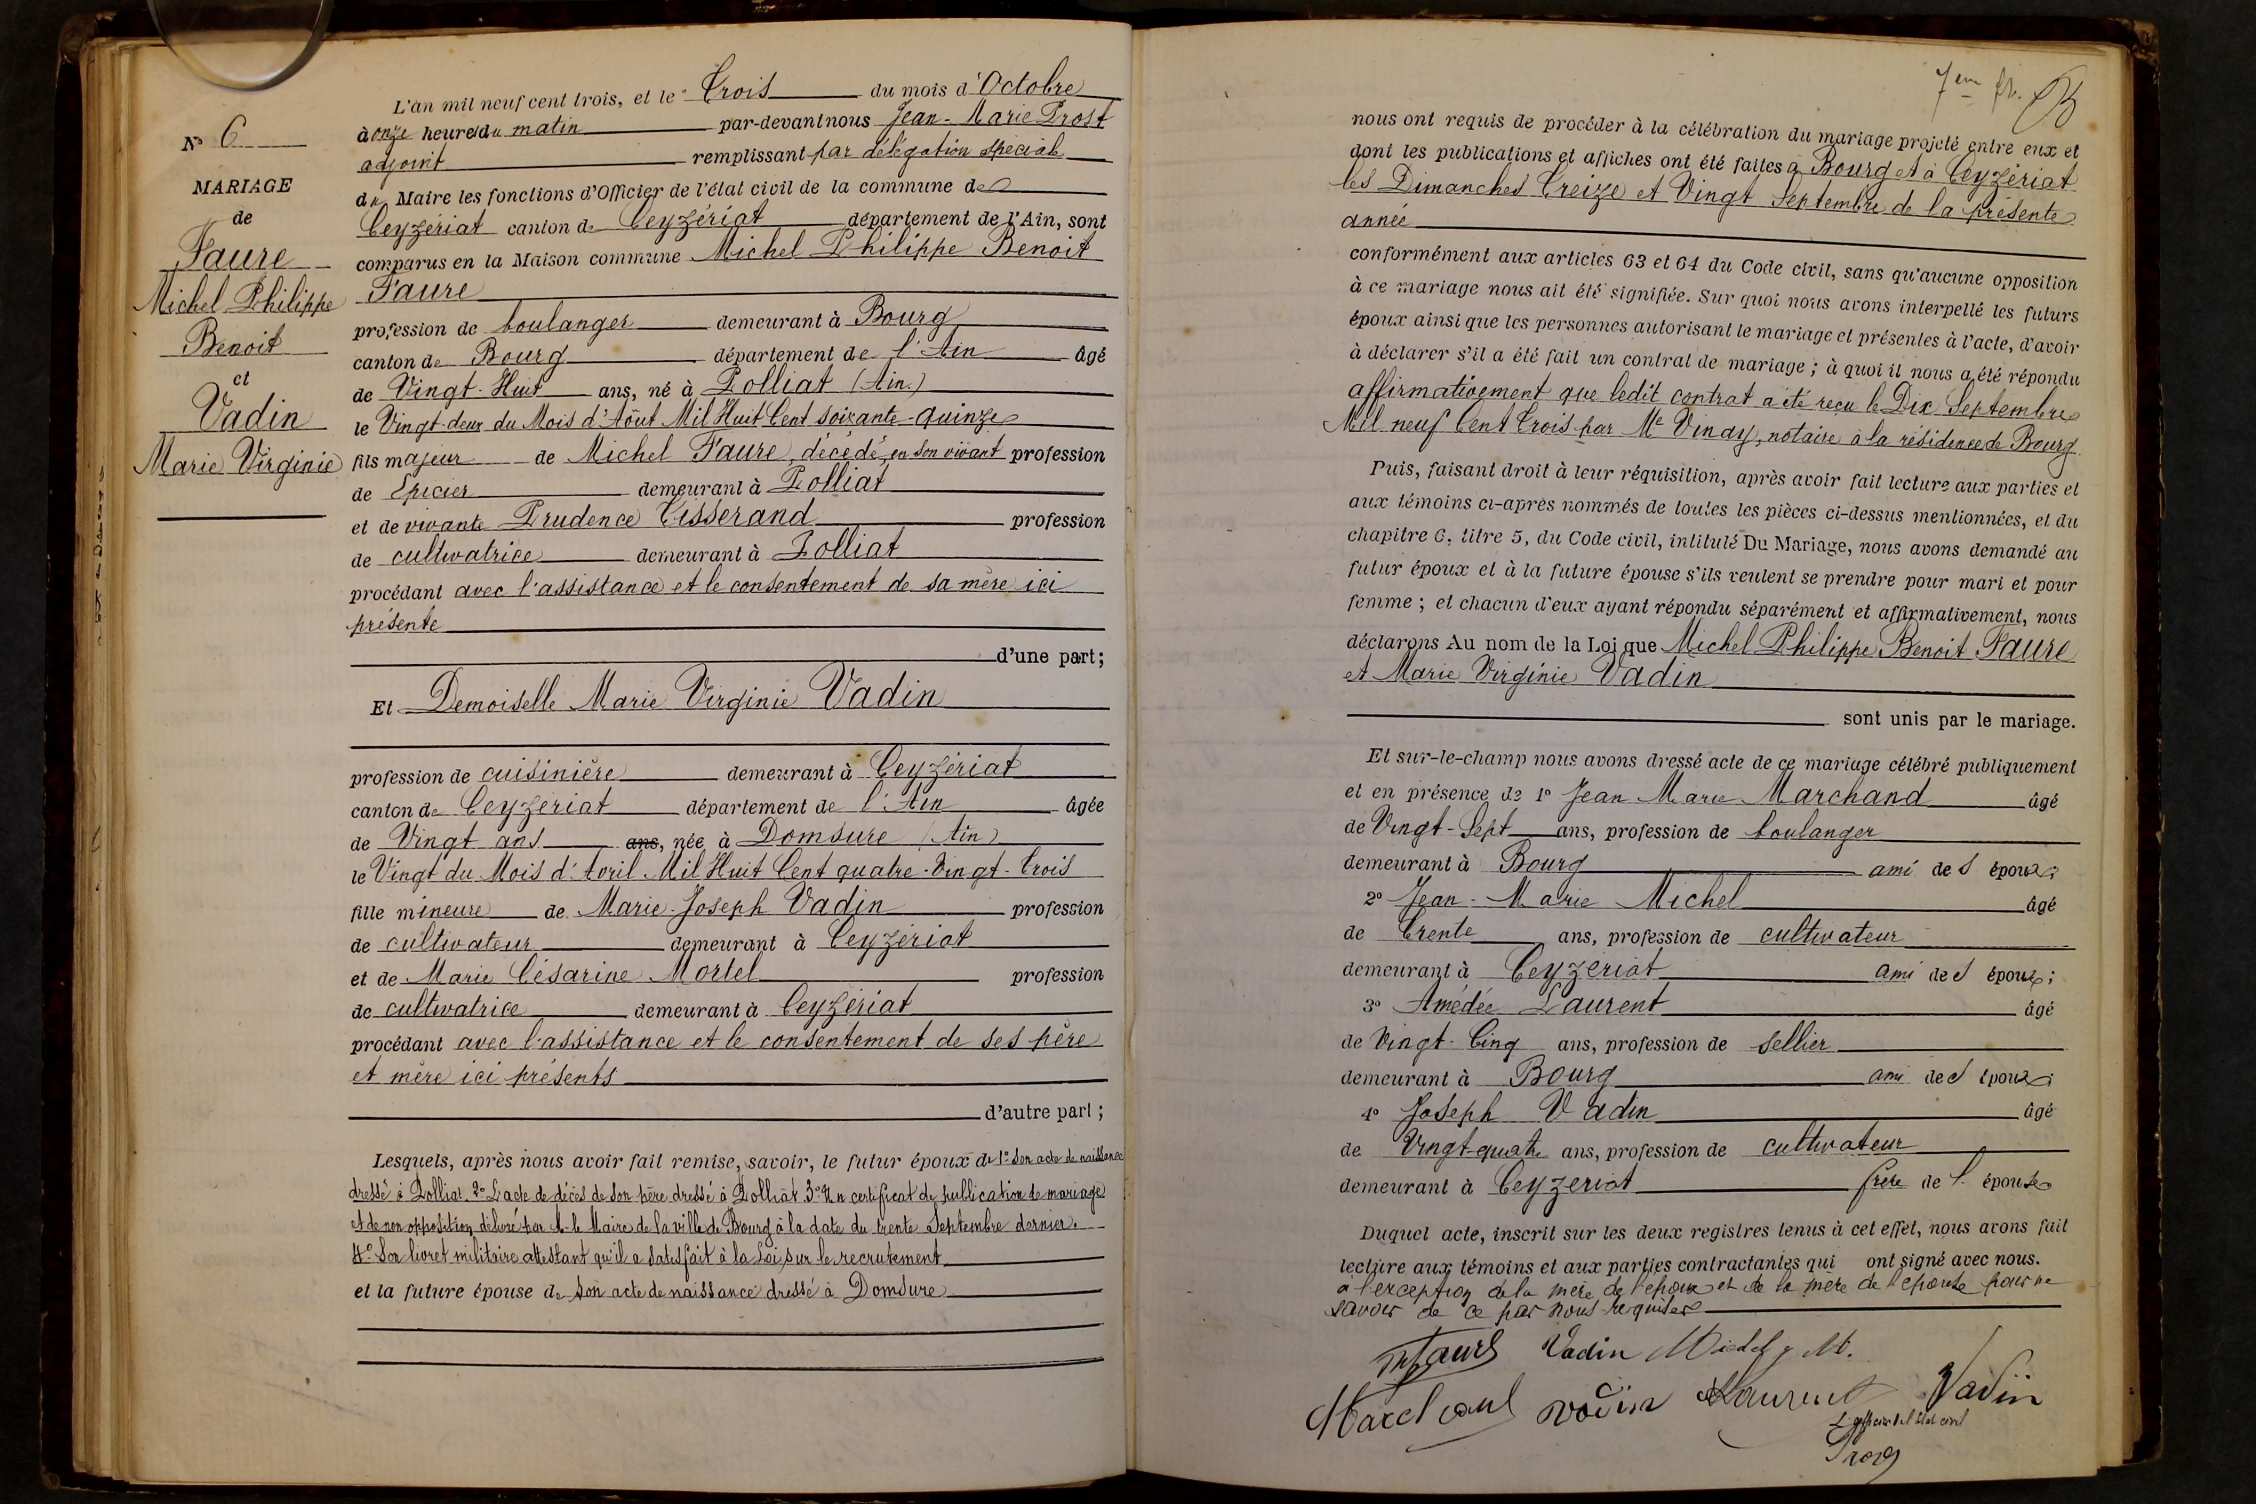 N° 6
MARIAGE
de
Faure
Michel Philippe
Benoit
et
Vadin
Marie Virginie
L'an mil neuf cent trois, et le Trois du mois d'Octobre
à onze heures du matin par-devant nous Jean-Marie Prost
adjoint remplissant par délégation spécial
du Maire les fonctions d'Officier de l'état civil de la commune de
Ceyzériat canton de Ceyzériat département de l'Ain, sont
comparus en la Maison commune Michel Philippe Benoit
Faure
profession de boulanger demeurant à Bourg
canton de Bourg département de l'Ain âgé
de Vingt-Huit ans, né à Polliat (Ain)
le Vingt-deux du Mois d'Août Mil Huit Cent soixante-quinze
fils majeur de Michel Faure, décédé, en son vivant profession
de Epicier demeurant à Polliat
et de vivante Prudence Tisserand profession
de cultivatrice demeurant à Polliat
procédant avec l'assistance et le consentement de sa mère ici
présente
d'une part;
Et Demoiselle Marie Virginie Vadin
profession de cuisinière demeurant à Ceyzériat
canton de Ceyzériat département de l'Ain âgée
de Vingt ans ans, née à Domsure (Ain)
le Vingt du Mois d'Avril Mil Huit Cent quatre-Vingt-Trois
fille mineure de Marie-Joseph Vadin profession
de cultivateur demeurant à Ceyzériat
et de Marie Césarine Mortel profession
de cultivatrice demeurant à Ceyzériat
procédant avec l'assistance et le consentement de ses père
et mère ici présents
d'autre part;
Lesquels, après nous avoir fait remise, savoir, le futur époux de 1° Son acte de naissance
dressé à Polliat. 2° L'acte de décès de son père dressé à Polliat. 3° Un certificat de publication de mariage
et de non opposition délivré par M. le Maire de la ville de Bourg à la date du trente Septembre dernier.
4° Son livret militaire attestant qu'il a satisfait à la Loi sur le recrutement
et la future épouse de Son acte de naissance dressé à Domsure
7em ft.
nous ont requis de procéder à la célébration du mariage projeté entre eux et
dont les publications et affiches ont été faites à Bourg et à Ceyzériat
les Dimanches Treize et Vingt Septembre de la présente
année
conformément aux articles 63 et 64 du Code civil, sans qu'aucune opposition
à ce mariage nous ait été signifiée. Sur quoi nous avons interpellé les futurs
époux ainsi que les personnes autorisant le mariage et présentes à l'acte, d'avoir
à déclarer s'il a été fait un contrat de mariage; à quoi il nous a été répondu
affirmativement que ledit contrat a été reçu le Dix Septembre
Mil neuf Cent Trois par Me Vinay, notaire à la résidence de Bourg
Puis, faisant droit à leur réquisition, après avoir fait lecture aux parties et
aux témoins ci-après nommés de toutes les pièces ci-dessus mentionnées, et du
chapitre 6, titre 5, du Code civil, intitulé Du Mariage, nous avons demandé au
futur époux et à la future épouse s'ils veulent se prendre pour mari et pour
femme; et chacun d'eux ayant répondu séparément et affirmativement, nous
déclarons Au nom de la Loi que Michel Philippe Benoit Faure
et Marie Virginie Vadin
sont unis par le mariage.
Et sur-le-champ nous avons dressé acte de ce mariage célébré publiquement
et en présence de 1° Jean Marie Marchand âgé
de Vingt-Sept ans, profession de boulanger
demeurant à Bourg ami des époux;
2° Jean-Marie Michel âgé
de Trente ans, profession de cultivateur
demeurant à Ceyzériat ami des époux;
3° Amédée Laurent âgé
de Vingt-Cinq ans, profession de sellier
demeurant à Bourg ami des époux;
4° Joseph Vadin âgé
de Vingt-quatre ans, profession de cultivateur
demeurant à Ceyzeriat frère de l'épouse
Duquel acte, inscrit sur les deux registres tenus à cet effet, nous avons fait
lecture aux témoins et aux parties contractantes qui ont signé avec nous.
à l'exception de la mère de l'époux et de la mère de l'épouse pour ne
savoir de ce par nous requises
M Faure Vadin Michel J M.
Marchand Vadin Laurent Vadin
L'officier de l'état civil
Prost